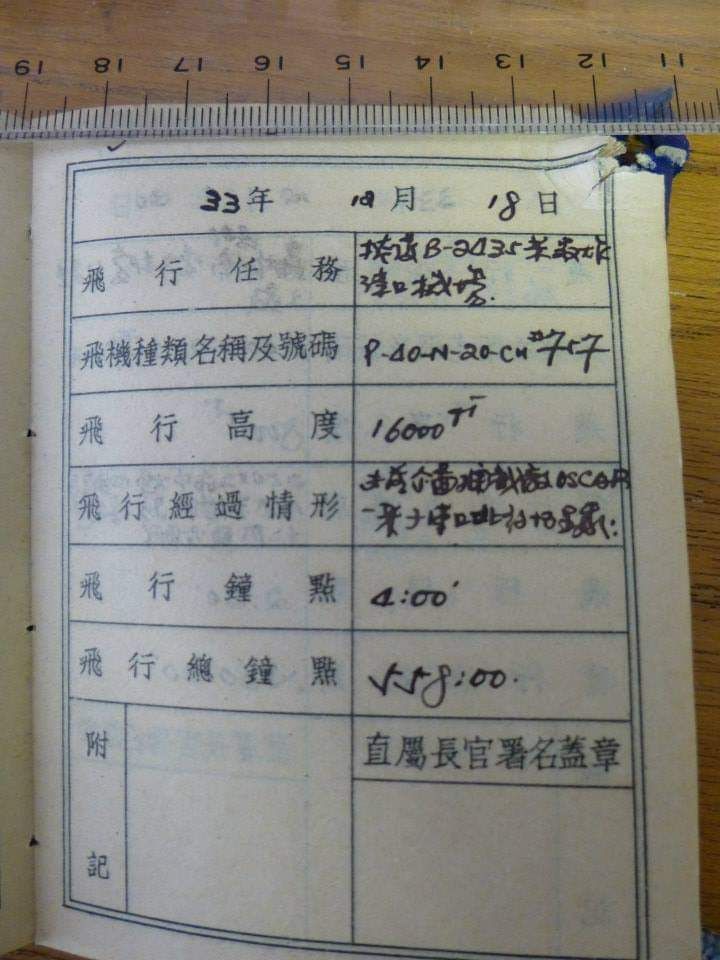 19 18 17 16 15 14 13 12 11
33年 12月 18日
飛行任務
掩護B-24 35架轟炸
漢口機場.
飛機種類名稱及號碼
P-40-N-20-CU #757
飛行高度
16000 FT
飛行經過情形
OSCAR
一架于漢口
飛行鐘點
4:00'
飛行總鐘點
558:00.
附記
直屬長官署名蓋章